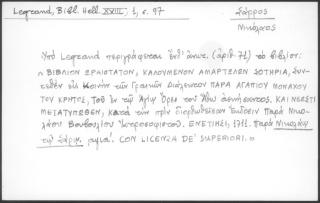 Legrand, Bibl. Hell. XVIII, 1, σ. 97
Σάρρος
Νικόλαος
Ὑπὸ Legrand περιγράφεται ἔνθ' ἀνωτ. (ἀριθ. 71) τὸ βιβλίον:
« ΒΙΒΛΙΟΝ ΩΡΑΙΟΤΑΤΟΝ, ΚΑΛΟΥΜΕΝΟΝ ΑΜΑΡΤΩΛΩΝ ΣΩΤΗΡΙΑ, Συν-
τεθὲν εἰς Κοινὴν τῶν Γραικῶν Διάλεκτον ΠΑΡΑ ΑΓΑΠΙΟΥ ΜΟΝΑΧΟΥ
ΤΟΥ ΚΡΗΤΟΣ, Τοῦ ἐν τῷ Ἁγίῳ Ὄρει τοῦ Ἄθω ἀσκήσαντος. ΚΑΙ ΝΕΩΣΤΙ
ΜΕΤΑΤΥΠΩΘΕΝ, κατὰ τὴν πρὶν διορθωθεῖσαν Ἔκδοσιν Παρὰ Νικο-
λάου Βουβουλίου Ἰατροσοφιστοῦ. ΕΝΕΤΙΗΣΙ, Παρὰ Νικολάῳ
τῷ Σάρῳ. CON LICENZA DE' SUPERIORI. »